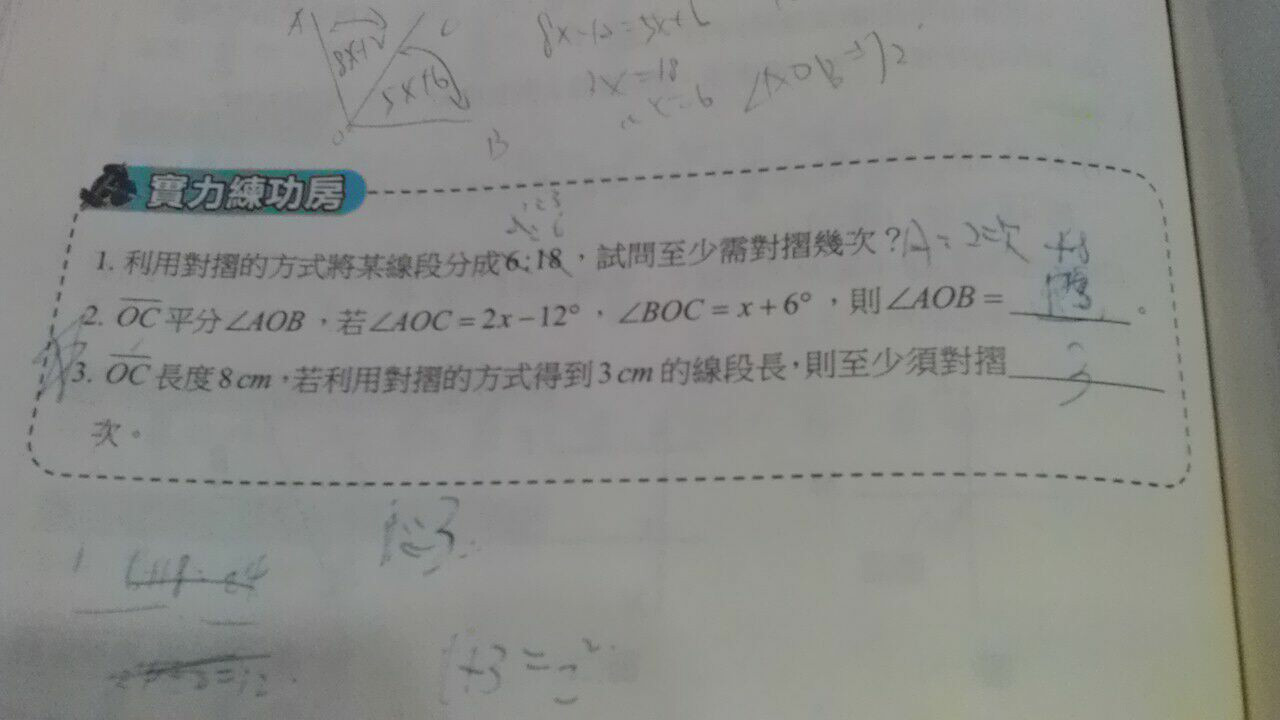 A
C
8x-12
5x+6
O
B
8x-12=5x+6
3x=18
x=6
∠AOB=72
實力練功房
1:3
1. 利用對摺的方式將某線段分成6:18，試問至少需對摺幾次？A:2次
2. OC平分∠AOB，若∠AOC=2x-12°，∠BOC=x+6°，則∠AOB=＿＿＿。
3. OC長度8cm，若利用對摺的方式得到3cm的線段長，則至少須對摺 3
次。
1:3
1
1+3=2²